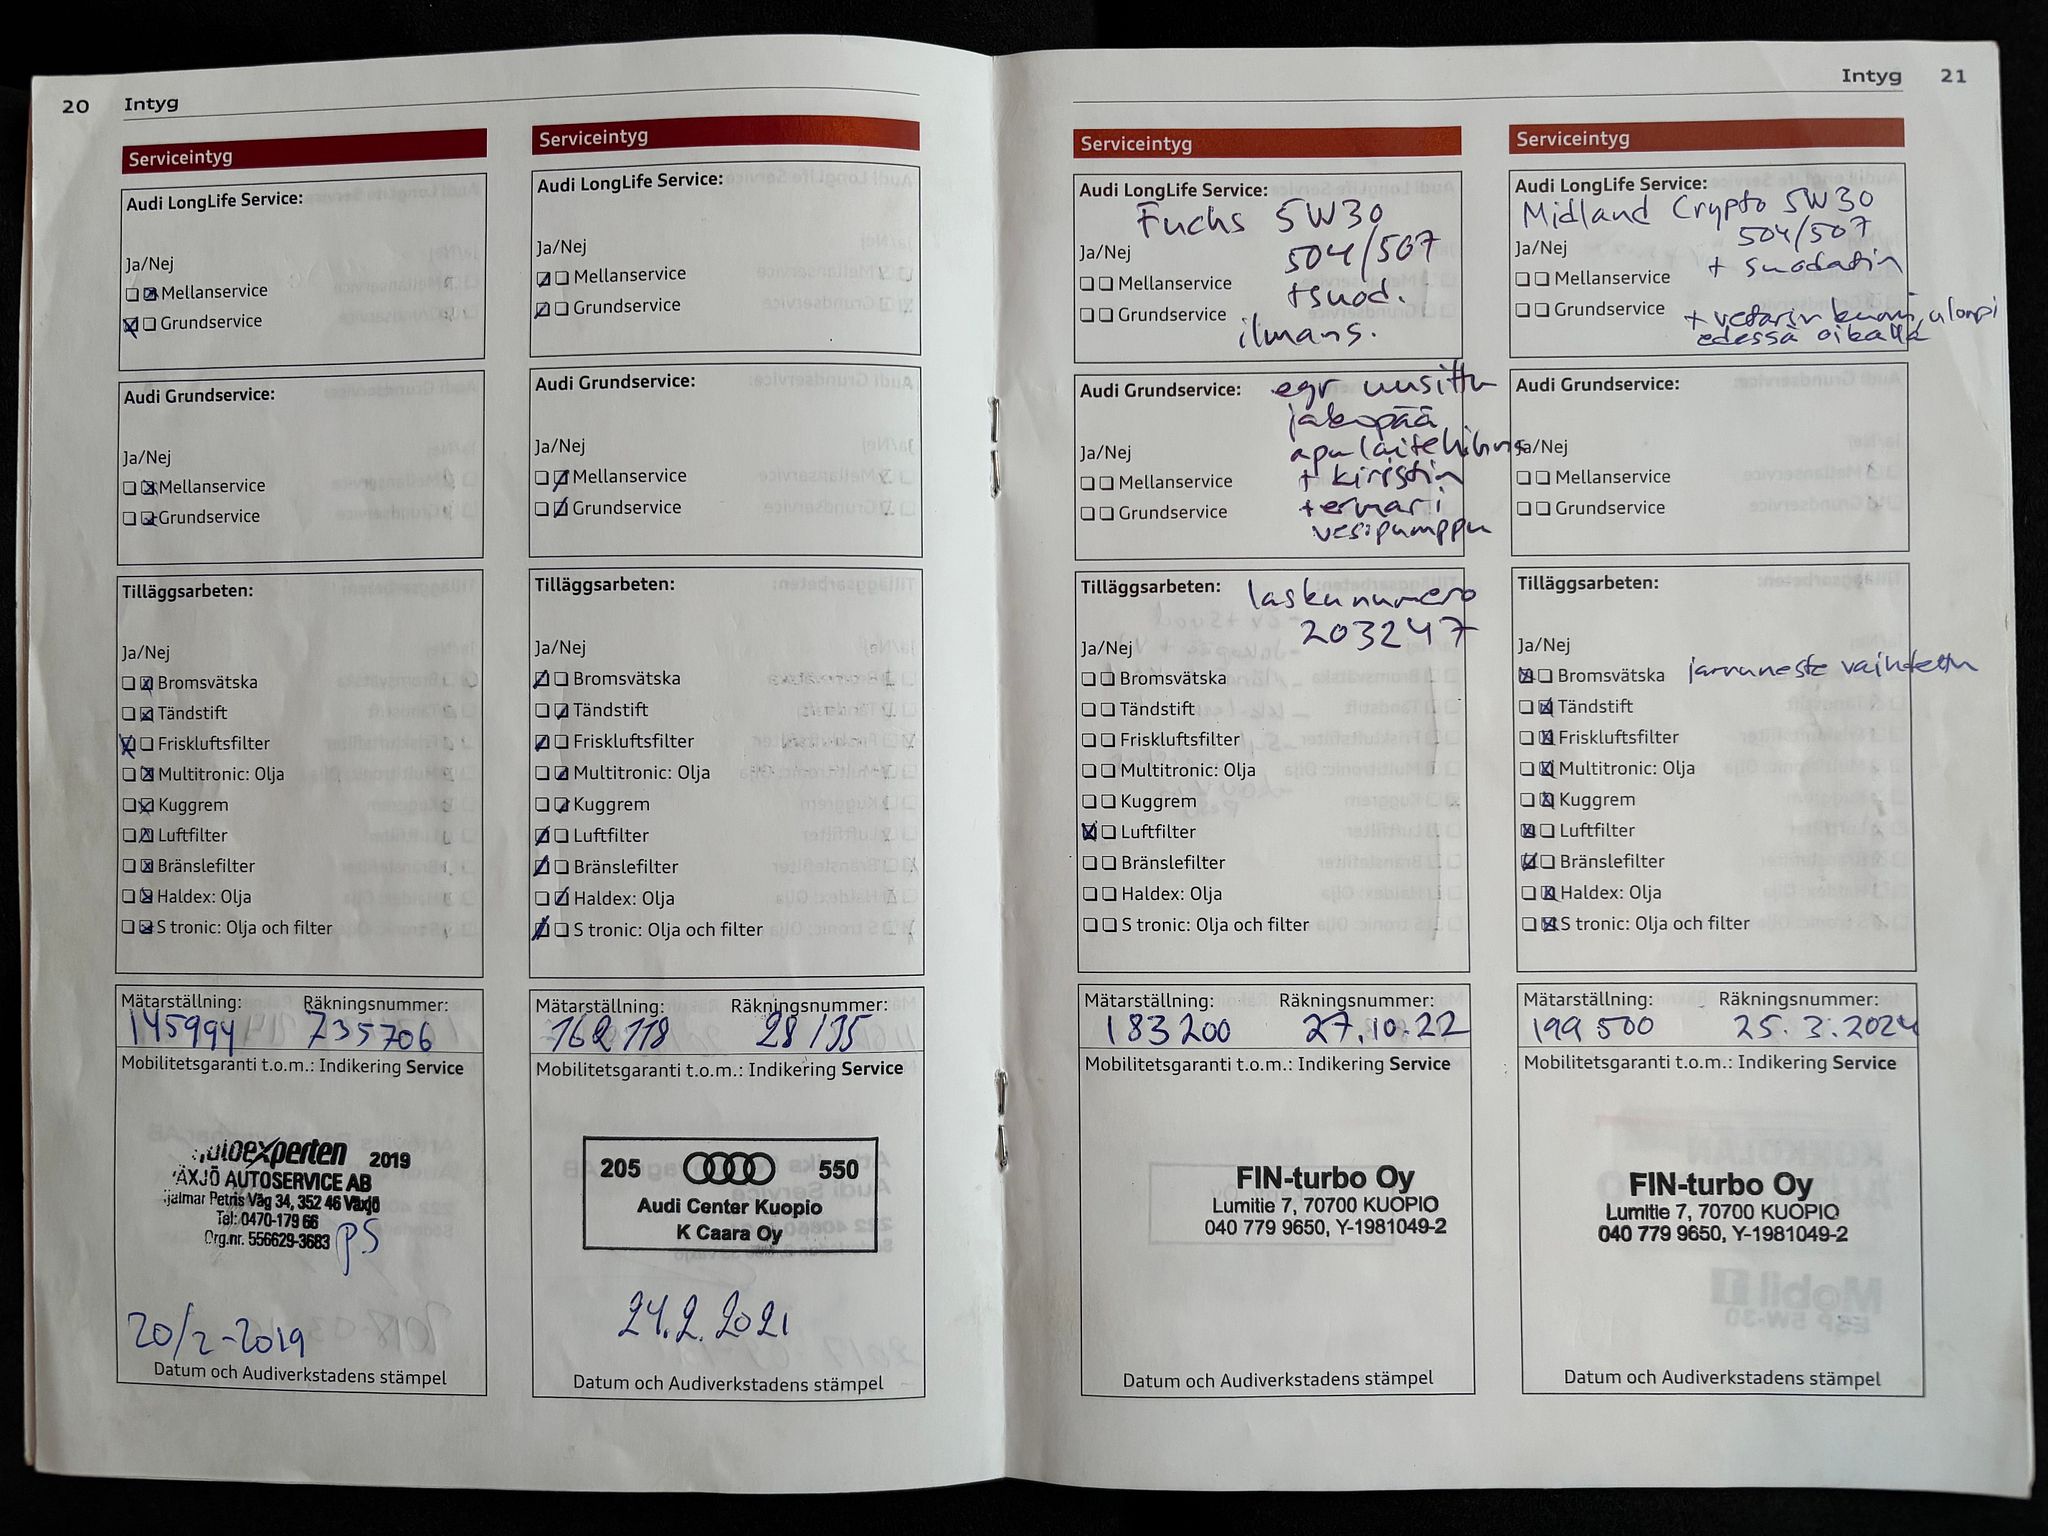 20 Intyg
Serviceintyg
Audi LongLife Service:
Ja/Nej
Mellanservice
Grundservice
Audi Grundservice:
Ja/Nej
Mellanservice
Grundservice
Tilläggsarbeten:
Ja/Nej
Bromsvätska
Tändstift
Friskluftsfilter
Multitronic: Olja
Kuggrem
Luftfilter
Bränslefilter
Haldex: Olja
S tronic: Olja och filter
Mätarställning: Räkningsnummer:
145994 735706
Mobilitetsgaranti t.o.m.: Indikering Service
2019
AUTOSERVICE AB
Petris Väg 34, 352 46 Växjö
Tel: 0470-179 66
Org.nr. 556629-3683
PS
20/2-2019
Datum och Audiverkstadens stämpel
Serviceintyg
Audi LongLife Service:
Ja/Nej
Mellanservice
Grundservice
Audi Grundservice:
Ja/Nej
Mellanservice
Grundservice
Tilläggsarbeten:
Ja/Nej
Bromsvätska
Tändstift
Friskluftsfilter
Multitronic: Olja
Kuggrem
Luftfilter
Bränslefilter
Haldex: Olja
S tronic: Olja och filter
Mätarställning: Räkningsnummer:
162118
Mobilitetsgaranti t.o.m.: Indikering Service
205 550
Audi Center Kuopio
K Caara Oy
24.2.2021
Datum och Audiverkstadens stämpel
Intyg 21
Serviceintyg
Audi LongLife Service:
Fuchs 5W30
Ja/Nej 504/507
Mellanservice +suod.
Grundservice
ilmans.
Audi Grundservice: egr uusittu
jakopää
Ja/Nej apulaitehihna
Mellanservice + kiristin
Grundservice + termari
vesipumppu
Tilläggsarbeten: laskunumero
203247
Ja/Nej
Bromsvätska
Tändstift
Friskluftsfilter
Multitronic: Olja
Kuggrem
Luftfilter
Bränslefilter
Haldex: Olja
S tronic: Olja och filter
Mätarställning: Räkningsnummer:
183200 27.10.22
Mobilitetsgaranti t.o.m.: Indikering Service
FIN-turbo Oy
Lumitie 7, 70700 KUOPIO
040 779 9650, Y-1981049-2
Datum och Audiverkstadens stämpel
Serviceintyg
Audi LongLife Service:
Midland Crypto 5W30
Ja/Nej 504/507
Mellanservice + suodatin
Grundservice + vetarin kumi, alempi
edessä oikealla
Audi Grundservice:
Ja/Nej
Mellanservice
Grundservice
Tilläggsarbeten:
Ja/Nej
Bromsvätska jarruneste vaihdettu
Tändstift
Friskluftsfilter
Multitronic: Olja
Kuggrem
Luftfilter
Bränslefilter
Haldex: Olja
S tronic: Olja och filter
Mätarställning: Räkningsnummer:
199500 25.3.2024
Mobilitetsgaranti t.o.m.: Indikering Service
FIN-turbo Oy
Lumitie 7, 70700 KUOPIO
040 779 9650, Y-1981049-2
Datum och Audiverkstadens stämpel